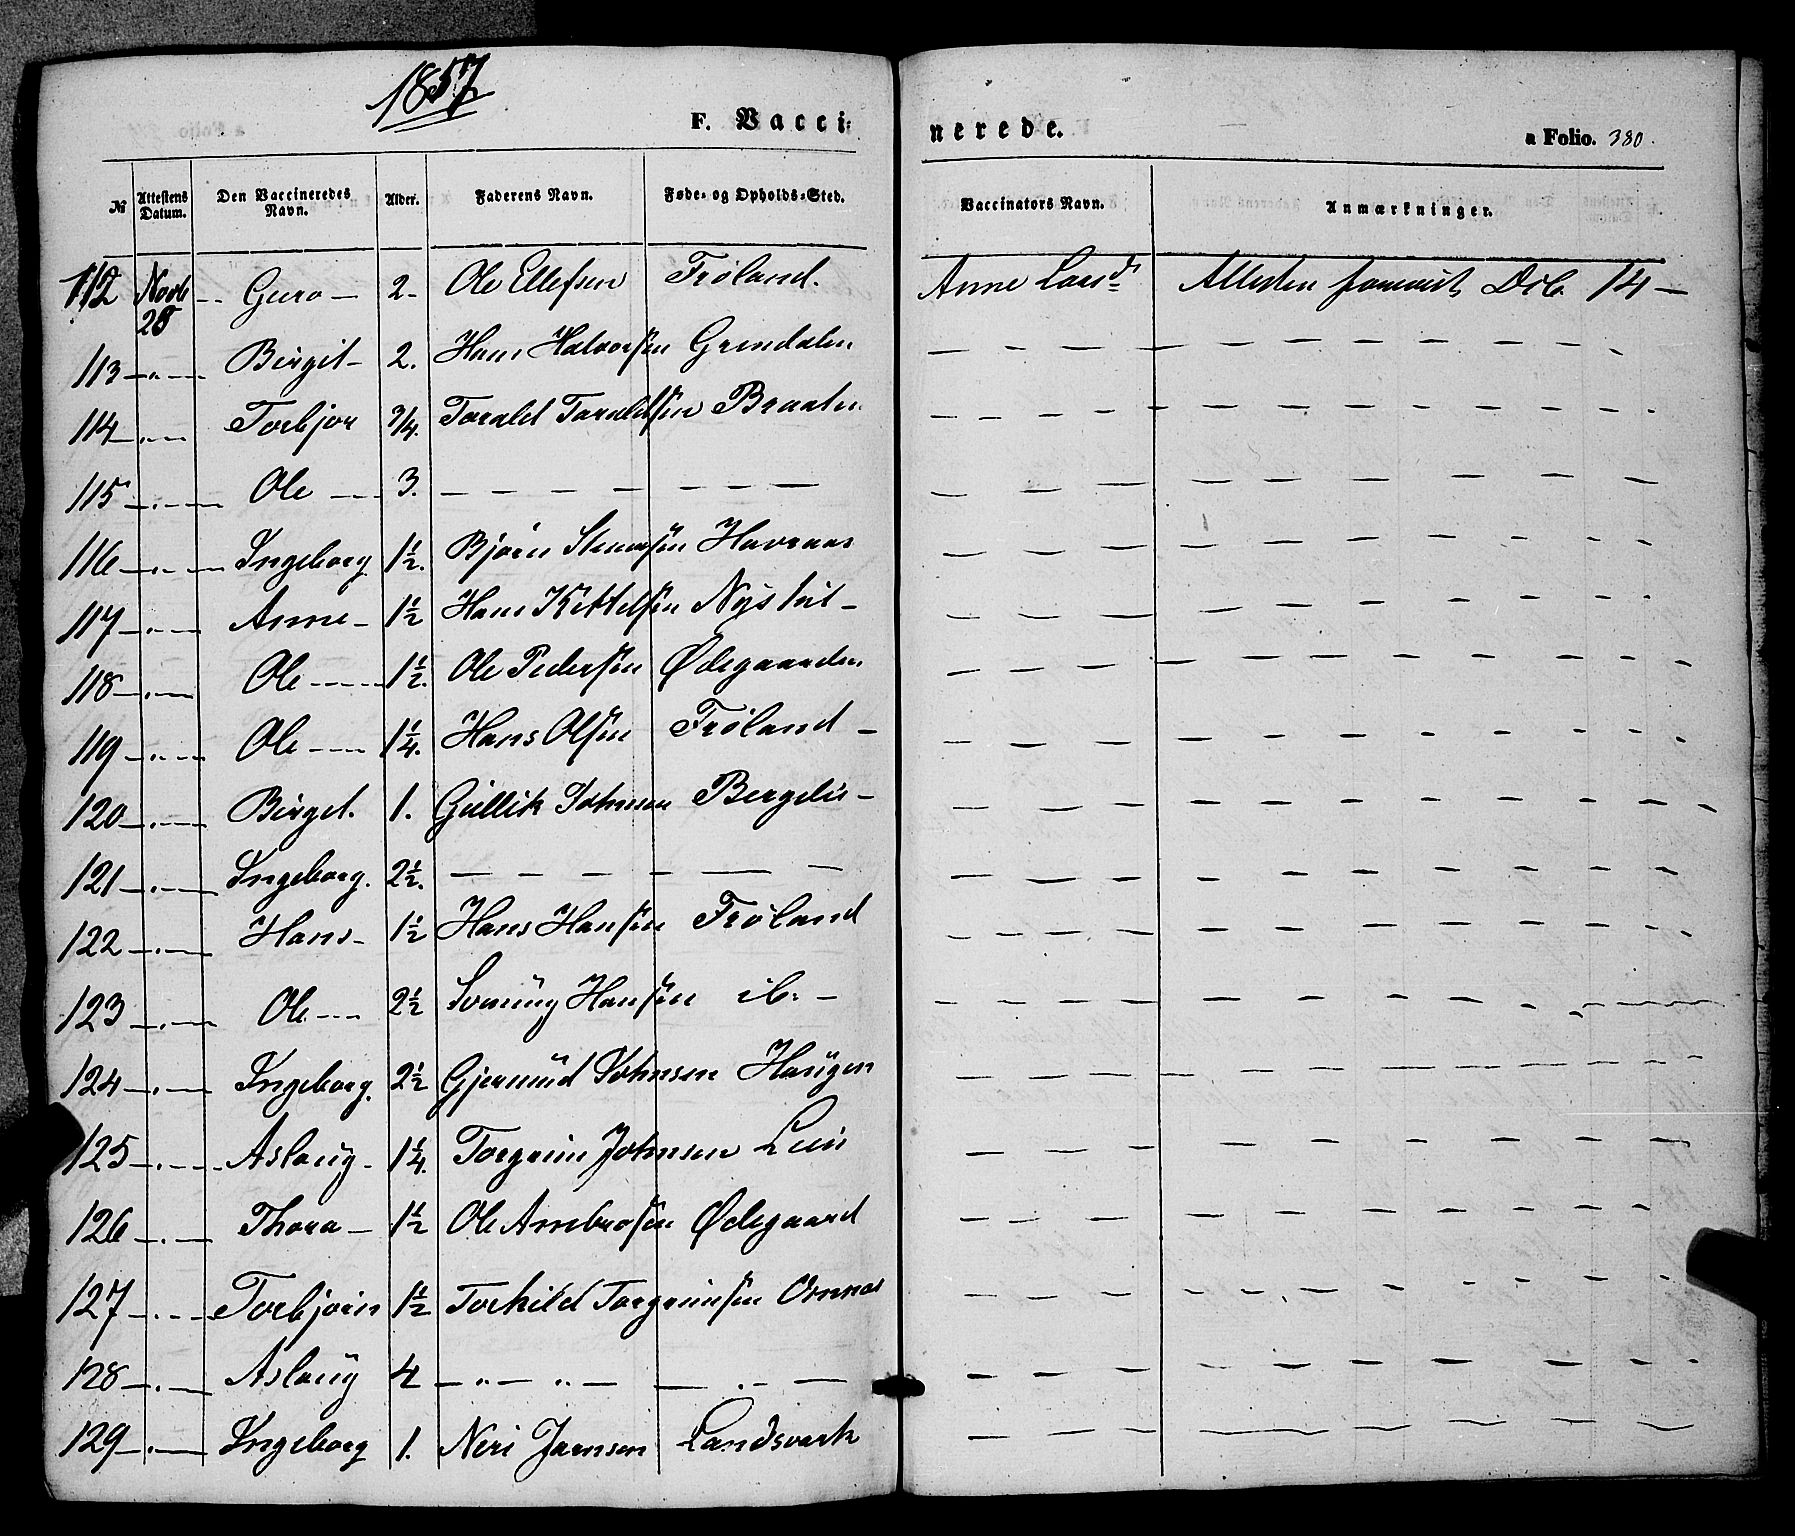 1857
F. Vacci-
nerede.
a Folio. 380.
№ Attestens Datum. Den Vaccineredes Navn. Alder. Faderens Navn. Føde- og Opholds-Sted. Vaccinators Navn. Anmærkninger.
112 Novb 28 - - Guro - 2. Ole Ellefsen Frøland. Anne Attesten Dcb. 14 -
113 - " - Birgit - 2. Hans Halvorsen Grendalen
114 - " - Torbjor 3/4. Tarald Taraldsen Braaten
115 - " - Ole - 3. - - - - - - -
116 - " - Ingeborg 1 1/2. Bjørn Havraas
117 - " - Anne - 1 1/2 Hans Kittelsen Nystul -
118 - " - Ole - - - 1 1/2. Ole Pedersen Ødegaarden
119 - " - Ole - - 1 1/4. Hans Olsen Frøland -
120 - " - Birget. 1. Gullik Johnsen -
121 - " - Ingeborg. 2 1/2. - - - - - -
122 - " - Hans - 1 1/2 Hans Hansen Frøland
123 - " - Ole - - 2 1/2 Hansen ib. -
124 - " - Ingeborg. 2 1/2 Gjermund Johnsen Haugen
125 - " - Aslaug - 1 1/4. Torgrim Johnsen
126 - " - Thora - 1 1/2 Ole Ambrosen Ødegaard
127 - " - Torbjørn 1 1/2 Torkild Torgrimsen
128 - " - Aslaug 4 - " - " - - " -
129 - " - Ingeborg 1. Neri Jamsen Landsverk